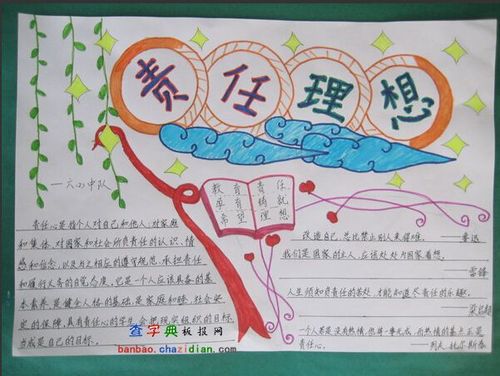 责任理想
一六小中队
责任心是指个人对自己和他人,对家庭
和集体,对国家和社会所负责任的认识、情
感和信念,以及与之相应的遵守规范、承担责任
和履行义务的自觉态度。它是一个人应该具备的基
本素养,是健全人格的基础,是家庭和睦,社会安
定的保障。具有责任心的学生,会把现实组织的目标
当成是自己的目标。
教育责任
希望理想
改造自己,总比禁止别人来得难。——鲁迅
我们是国家的主人,应该处处为国家着想。
——雷锋
人生须知负责任的苦处,才能知道尽责任的乐趣。
——梁启超
一个人若是没有热情,他将一事无成,而热情的基点正是
责任心。——列夫·托尔斯泰
查字典板报网
banbao.chazidian.com